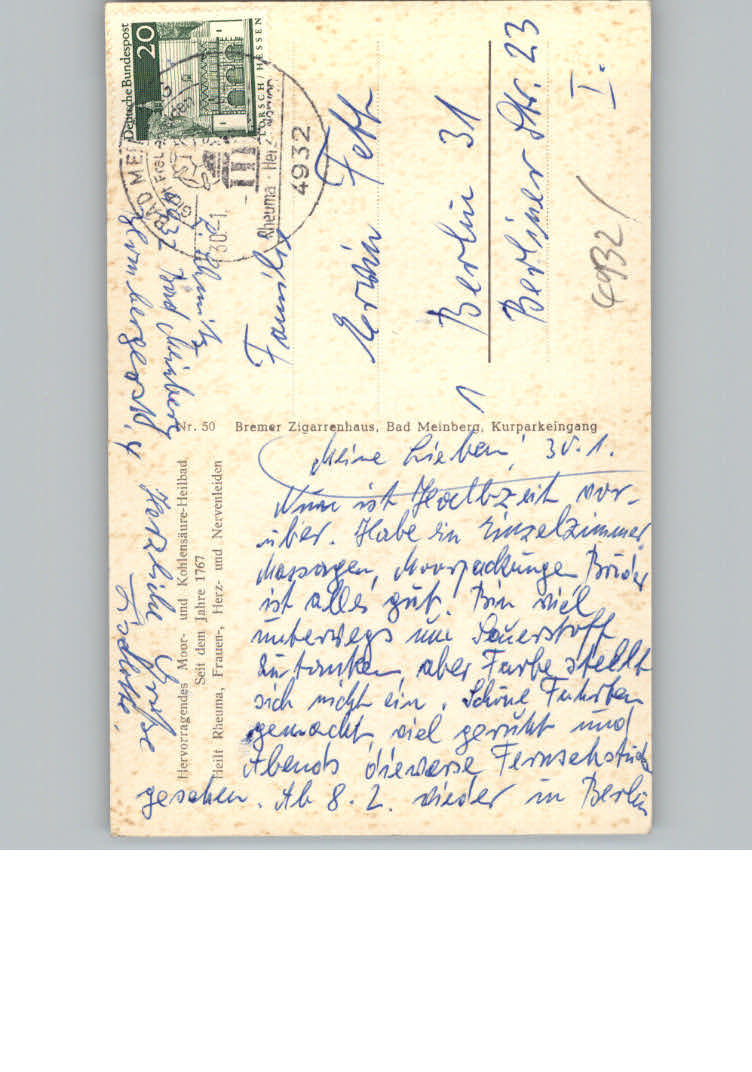 Meine Lieben! 30.1.
Nun ist Halbzeit vor-
über. Habe ein Einzelzimmer
Massagen, Moorpackungen Bäder
ist alles gut. Bin viel
unterwegs um Sauerstoff
zu tanken, aber Farbe stellt
sich nicht ein. Schöne Fahrten
gemacht, viel geruht und
Abends dieverse Fernsehstücke
gesehen. Ab 8.2. wieder in Berlin
Herzliche Grüße
Hervorragendes Moor- und Kohlensäure-Heilbad
Seit dem Jahre 1767
Heilt Rheuma, Frauen-, Herz- und Nervenleiden
Nr. 50 Bremer Zigarrenhaus, Bad Meinberg, Kurparkeingang
Bad Meinberg
Deutsche Bundespost
20
LORSCH/HESSEN
BAD MEI
Rheuma · Herz
30.1.
4932
Familie
Erwin Feth
1 Berlin 31
Berliner Str. 23
I.
4932/